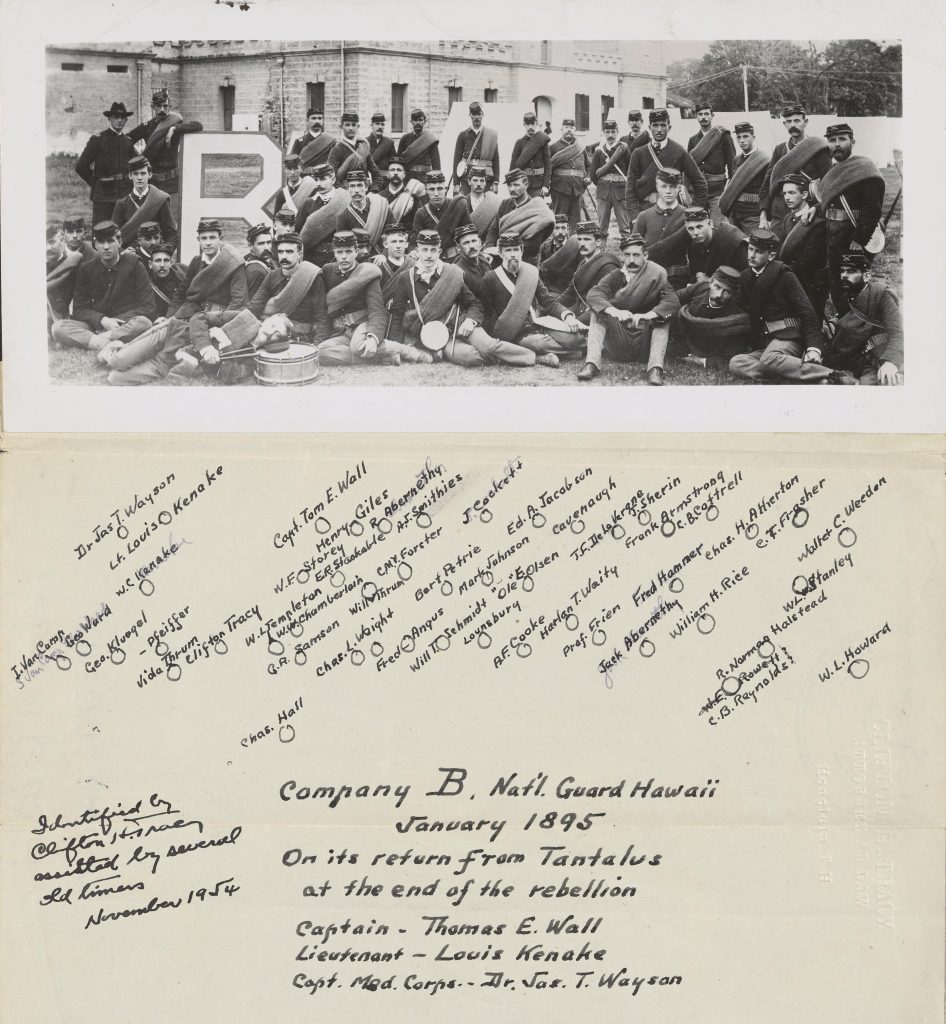 B
Dr Jas. T. Wayson
Lt. Louis Kenake
W.C. Kenake
Capt. Tom E. Wall
Henry Giles
R. Abernethy
A.J. Smithies
W.F. Storey
E.R. Stackable
J. Cockett
Ed. A. Jacobson
Cavenaugh
T.F. De la Vergne
J. Sherin
Frank Armstrong
C.B. Cottrell
Chas. H. Atherton
C.F. Frasher
Walter C. Weedon
I. Van Camp
Geo Ward
Geo. Kluegel
- Pfeiffer
Vida Thrum
Clifton Tracy
W.L. Templeton
W.W. Chamberlain
C.M.V. Forster
G.A. Samson
Will Thrum
Chas. L. Wright
Bert Petrie
Mark Johnson
Fred Angus
Will T. Schmidt
"Ole" E. Olsen
Lounsbury
A.F. Cooke
Harlan T. Waity
Prof. Frien
Fred Hammer
Jack Abernethy
William H. Rice
W.L. Stanley
R. Norman Halstead
W.E. Rowell?
C.B. Reynolds?
W.L. Howard
Chas. Hall
Company B, Nat'l. Guard Hawaii
January 1895
On its return from Tantalus
at the end of the rebellion
Captain - Thomas E. Wall
Lieutenant - Louis Kenake
Capt. Med. Corps. - Dr. Jas. T. Wayson
Identified by
Clifton H. Tracy
assisted by several
old timers
November 1954